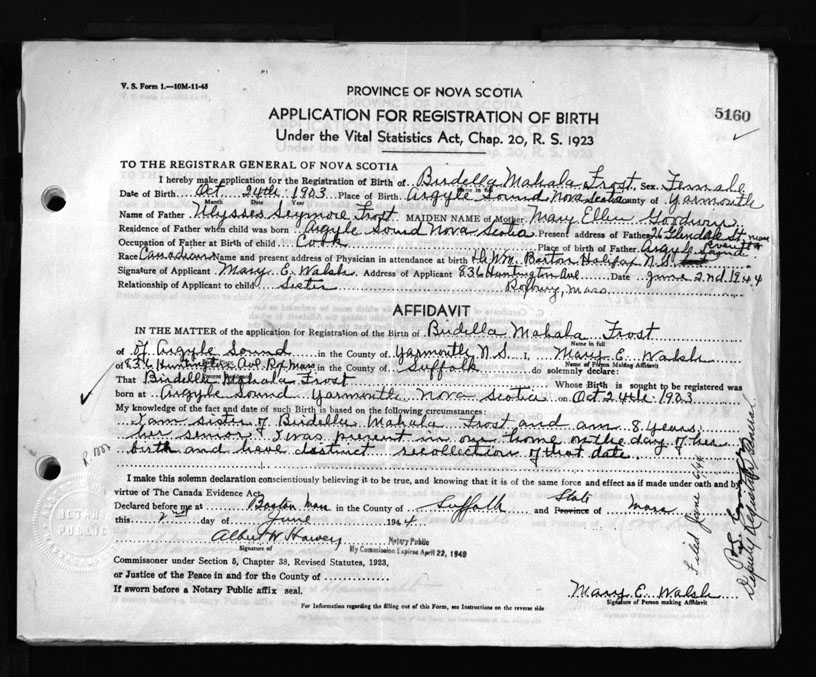 V. S. Form 1.—10M-11-43
PROVINCE OF NOVA SCOTIA
5160
APPLICATION FOR REGISTRATION OF BIRTH
Under the Vital Statistics Act, Chap. 20, R. S. 1923
TO THE REGISTRAR GENERAL OF NOVA SCOTIA
I hereby make application for the Registration of Birth of Birdella Mahala Frost Sex Female
Date of Birth Oct 24th 1903 Place of Birth Argyle Sound Nova Scotia County of Yarmouth
Month Date Year
Name of Father Ulysses Seymore Frost MAIDEN NAME of Mother Mary Ellen Goodwin
Residence of Father when child was born Argyle Sound Nova Scotia Present address of Father 26 Glendale St. Everett
Occupation of Father at Birth of child Cook Place of birth of Father Argyle Sound
Race Canadian Name and present address of Physician in attendance at birth Wm. Barton Halifax N.S.
Signature of Applicant Mary E. Walsh Address of Applicant 836 Huntington Ave Date June 2nd 1944
Relationship of Applicant to child Sister Roxbury, Mass.
AFFIDAVIT
IN THE MATTER of the application for Registration of the Birth of Birdella Mahala Frost
Name in full
of of Argyle Sound in the County of Yarmouth N.S. I, Mary E. Walsh
Name of Person Making Affidavit
of 836 Huntington Ave Rox Mass in the County of Suffolk do solemnly declare:
That Birdella Mahala Frost Whose Birth is sought to be registered was
born at Argyle Sound Yarmouth Nova Scotia on Oct 24th 1903
My knowledge of the fact and date of such Birth is based on the following circumstances:
I am sister of Birdella Mahala Frost and am 8 years
her senior & I was present in our home on the day of her
birth and have distinct recollection of that date.
I make this solemn declaration conscientiously believing it to be true, and knowing that it is of the same force and effect as if made under oath and by
virtue of The Canada Evidence Act,
Declared before me at Boston Mass in the County of Suffolk and Province State of Mass
this 2nd day of June 1944
Albert W Harvey Notary Public
Signature of My Commission Expires April 22, 1949
Commissioner under Section 5, Chapter 38, Revised Statutes, 1923,
or Justice of the Peace in and for the County of
If sworn before a Notary Public affix seal.
Mary E. Walsh
Signature of Person making Affidavit
For Information regarding the filling out of this Form, see Instructions on the reverse side
NOTARY PUBLIC
Filed June 6/44
Deputy Registrar General